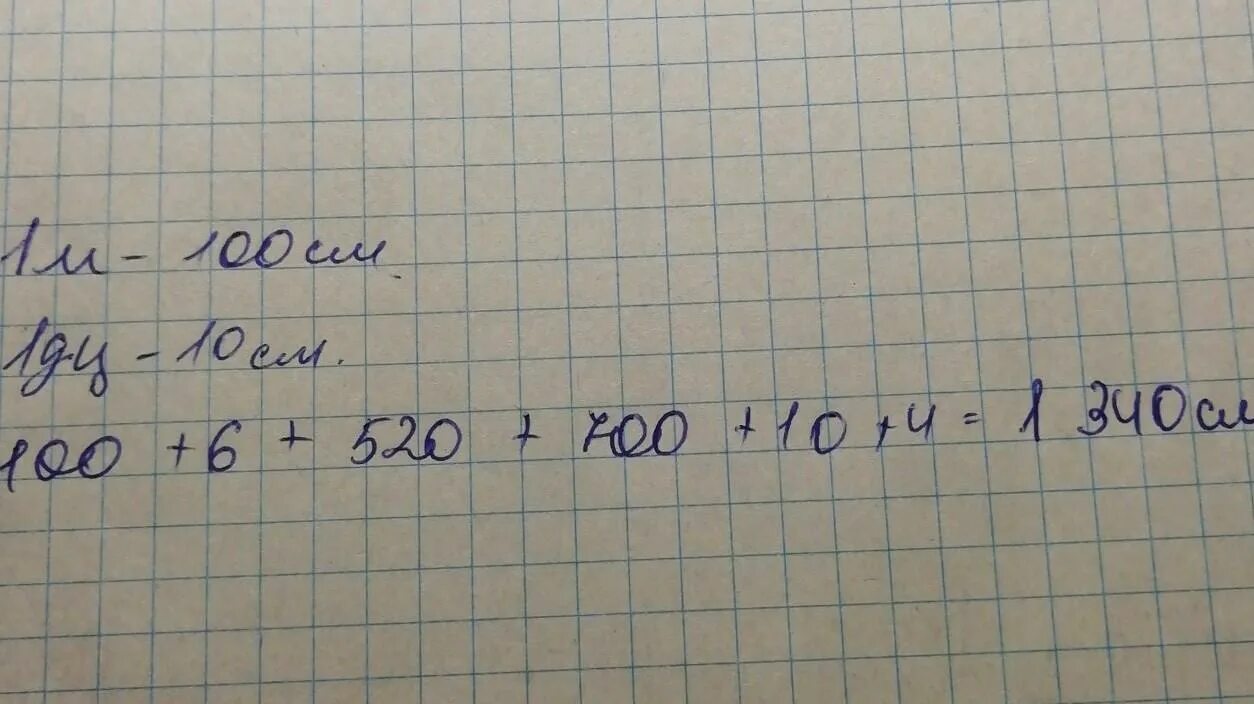 1м - 100см.
1дц - 10см.
100 + 6 + 520 + 700 + 10 + 4 = 1 340см